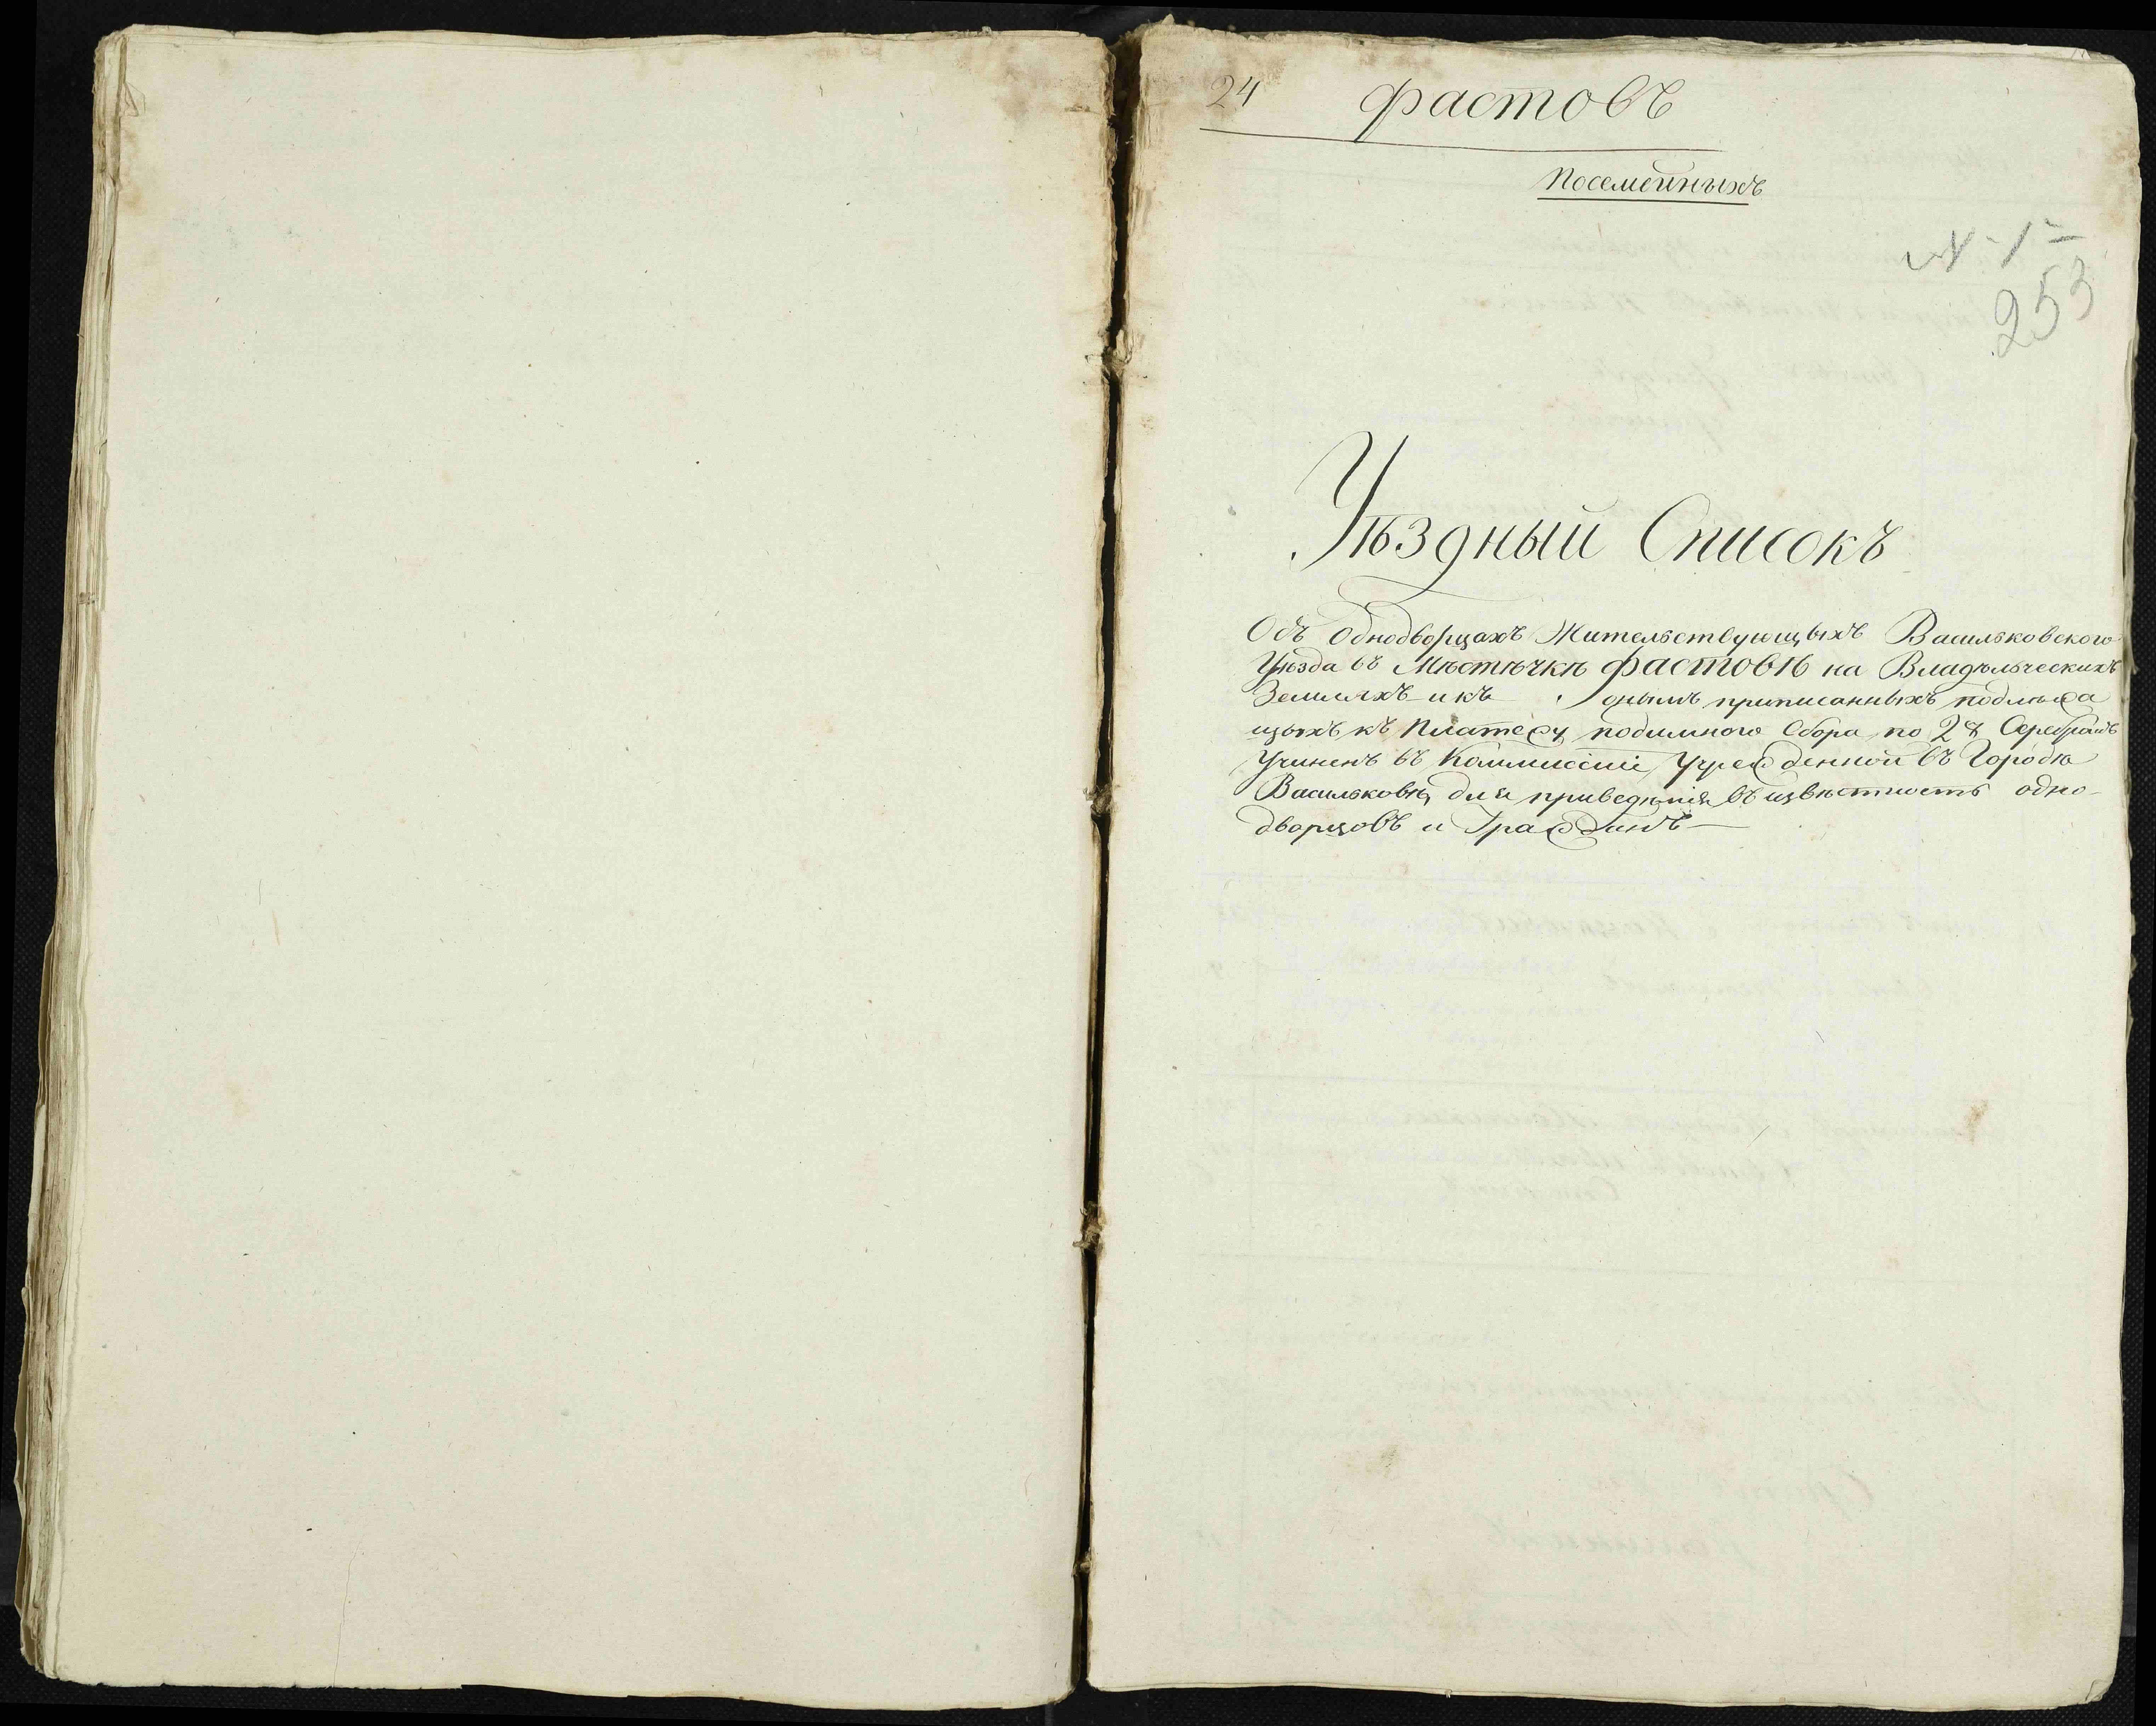 24 Фастовъ
Посемейныхъ
№ 1
253
Уѣздный Списокъ
Объ Однодворцахъ Жительствующыхъ Васильковского
Уѣзда въ Мѣстѣчкѣ Фастовѣ на Владѣльческихъ
Земляхъ и къ онымъ приписанныхъ подлѣжа
щыхъ къ Платежу подымного Сбора по 2 Серебромъ
Учиненъ въ Коммиссіи Учрежденной въ Городѣ
Васильковѣ, для приведѣнія въ извѣстность одно-
дворцовъ и Гражданъ —